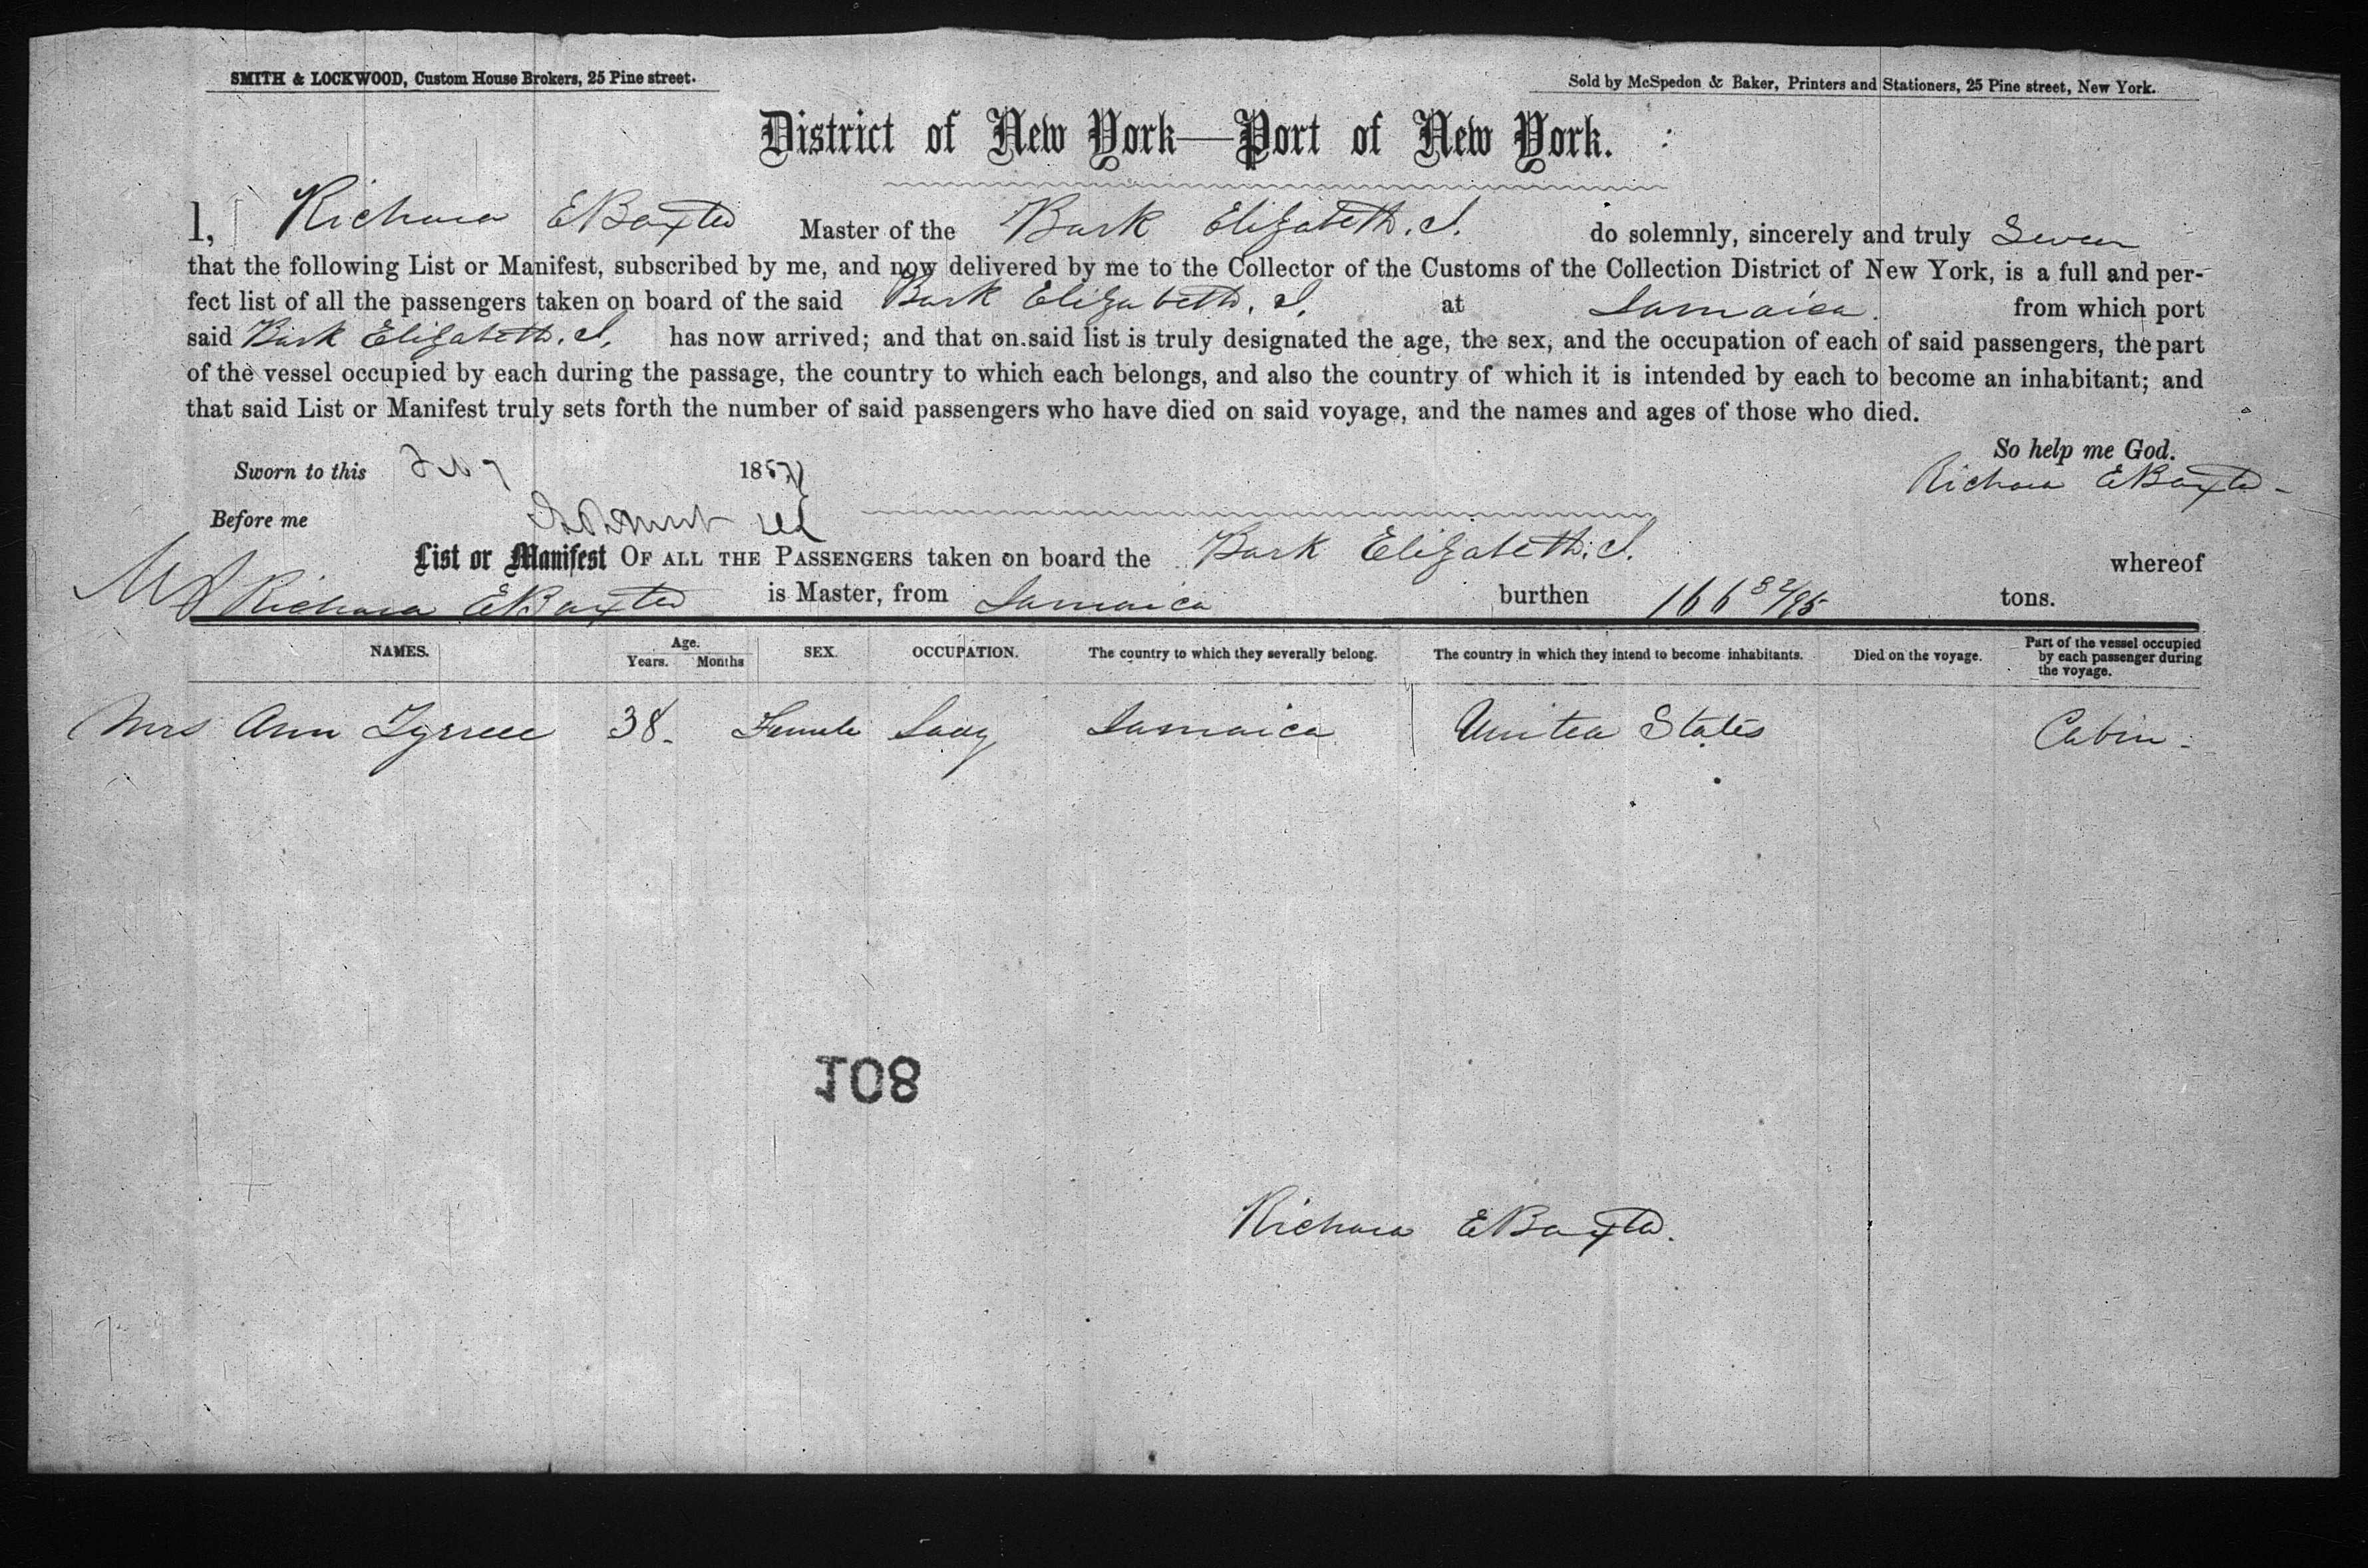 SMITH & LOCKWOOD, Custom House Brokers, 25 Pine street.
Sold by McSpedon & Baker, Printers and Stationers, 25 Pine street, New York.
District of New York—Port of New York.
I, Richard E Baxter Master of the Bark Elizabeth. J. do solemnly, sincerely and truly Swear
that the following List or Manifest, subscribed by me, and now delivered by me to the Collector of the Customs of the Collection District of New York, is a full and per-
fect list of all the passengers taken on board of the said Bark Elizabeth. J. at Jamaica. from which port
said Bark Elizabeth. J. has now arrived; and that on said list is truly designated the age, the sex, and the occupation of each of said passengers, the part
of the vessel occupied by each during the passage, the country to which each belongs, and also the country of which it is intended by each to become an inhabitant; and
that said List or Manifest truly sets forth the number of said passengers who have died on said voyage, and the names and ages of those who died.
So help me God.
Sworn to this 1857
Richard E Baxter
Before me
List or Manifest OF ALL THE PASSENGERS taken on board the Bark Elizabeth. J. whereof
Richard E Baxter is Master, from Jamaica burthen 166 82/95 tons.
NAMES. Age. Years. Months SEX. OCCUPATION. The country to which they severally belong. The country in which they intend to become inhabitants. Died on the voyage. Part of the vessel occupied by each passenger during the voyage.
Mrs Ann Tyrrell 38 Female Lady Jamaica United States Cabin
108
Richard E Baxter.